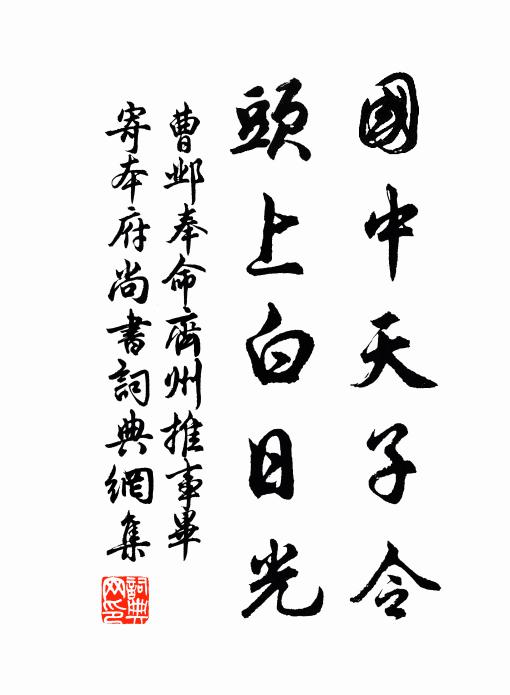 國中天子令
頭上白日光
曹邺奉命齊州推事畢
寄本府尚書詞典網集
詞典
网印